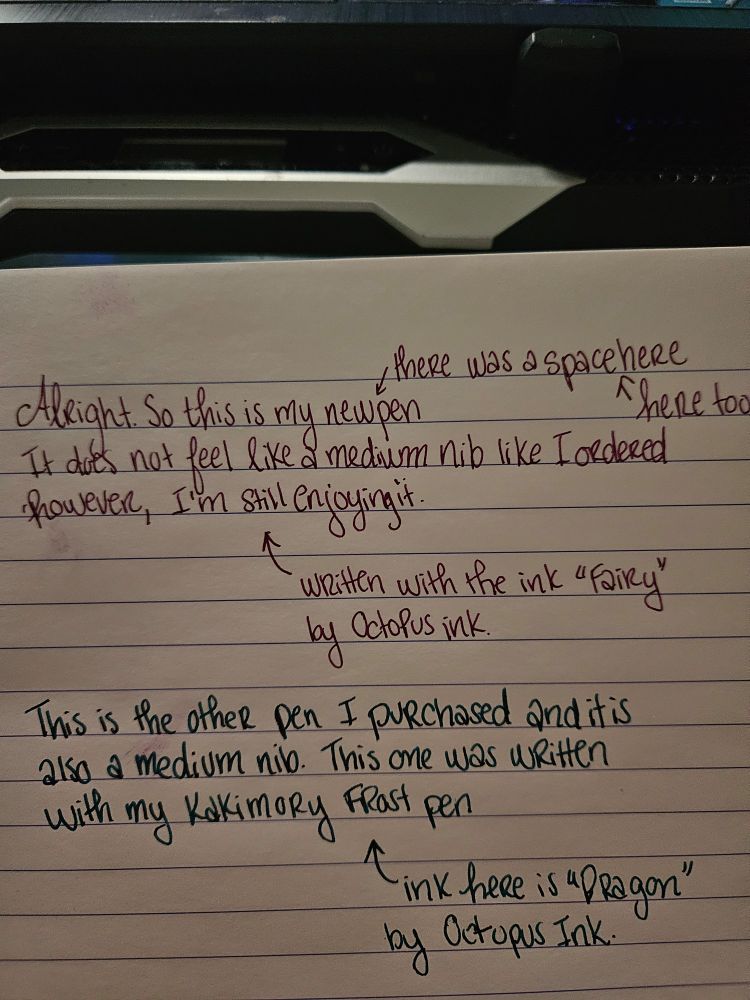 there was a space here
here too
Alright. So this is my newpen
It does not feel like a medium nib like I ordered
however, I'm still enjoying it.
written with the ink "Fairy"
by Octopus ink.
This is the other pen I purchased and it is
also a medium nib. This one was written
with my Kakimory Frost pen
ink here is "Dragon"
by Octopus Ink.